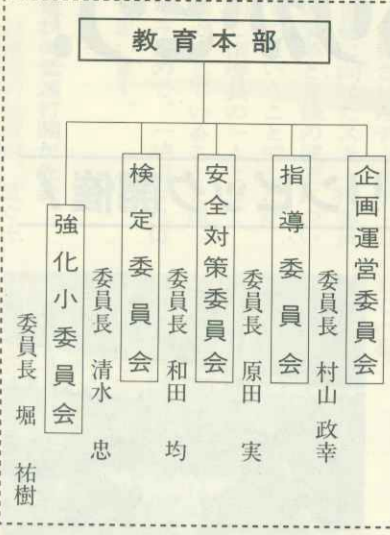 教育本部
企画運営委員会
委員長 村山 政幸
指導委員会
委員長 原田 実
安全対策委員会
委員長 和田 均
検定委員会
委員長 清水 忠
強化小委員会
委員長 堀 祐樹